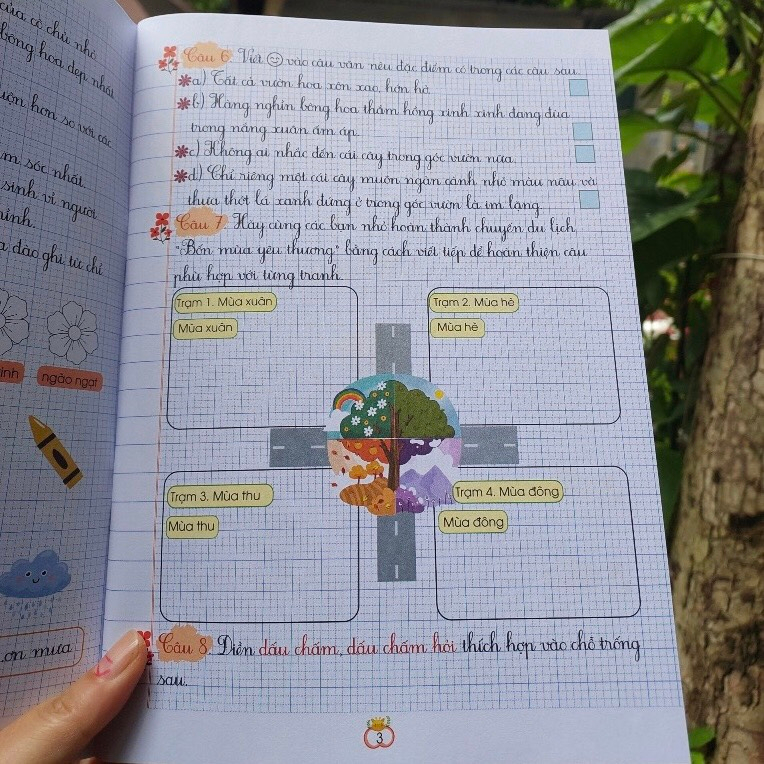 của cô chủ nhỏ
bông hoa đẹp nhất
hơn so với các
sóc nhất.
sinh vì người
đào ghi từ chỉ
ngào ngạt
mưa
Câu 6. Viết ☺ vào câu văn nêu đặc điểm có trong các câu sau.
a) Tất cả vườn hoa xôn xao, hớn hở.
b) Hàng nghìn bông hoa thắm hồng xinh xinh đang đùa
trong nắng xuân ấm áp.
c) Không ai nhắc đến cái cây trong góc vườn nữa.
d) Chỉ riêng một cái cây muôn ngàn cánh nhỏ màu nâu và
thưa thớt lá xanh đứng ở trong góc vườn là im lặng.
Câu 7. Hãy cùng các bạn nhỏ hoàn thành chuyến du lịch
"Bốn mùa yêu thương" bằng cách viết tiếp để hoàn thiện câu
phù hợp với từng tranh.
Trạm 1. Mùa xuân
Mùa xuân
Trạm 2. Mùa hè
Mùa hè
Trạm 3. Mùa thu
Mùa thu
Trạm 4. Mùa đông
Mùa đông
Câu 8. Điền dấu chấm, dấu chấm hỏi thích hợp vào chỗ trống
sau.
3